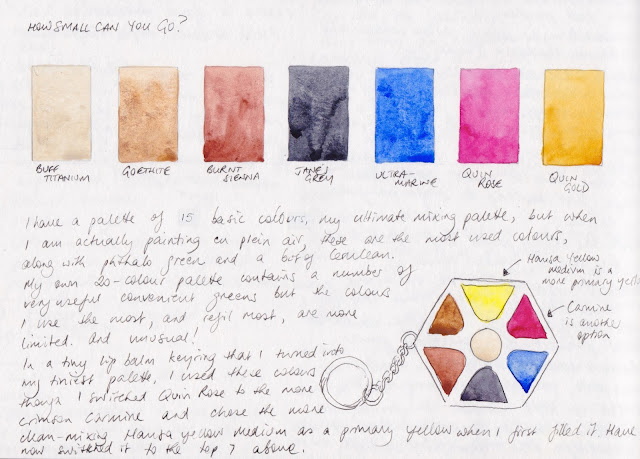 HOW SMALL CAN YOU GO?
BUFF
TITANIUM
GOETHITE
BURNT
SIENNA
JANE'S
GREY
ULTRA-
MARINE
QUIN
ROSE
QUIN
GOLD
I have a palette of 15 basic colours, my ultimate mixing palette, but when
I am actually painting en plein air, these are the most used colours,
along with phthalo green and a bit of Cerulean.
My own 20-colour palette contains a number of
very useful convenient greens but the colours
I use the most, and refil most, are more
limited. And unusual!
In a tiny lip balm keyring that I turned into
my tiniest palette, I used these colours
though I switched Quin Rose to the more
crimson Carmine and chose the more
clean-mixing Hansa yellow medium as a primary yellow when I first filled it. Have
now switched it to the top 7 above.
Hansa Yellow
medium is a
more primary yell
Carmine
is another
option